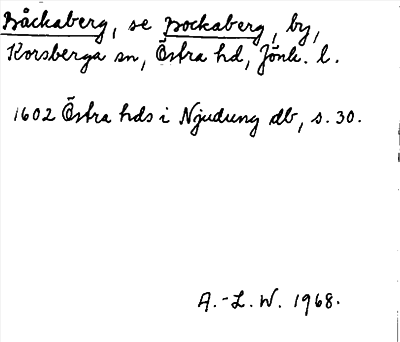 Båckaberg, se Bockaberg, by,
Korsberga sn, Östra hd, Jönk. l.
1602 Östra hds i Njudung db, s. 30.
A.-L. W. 1968.